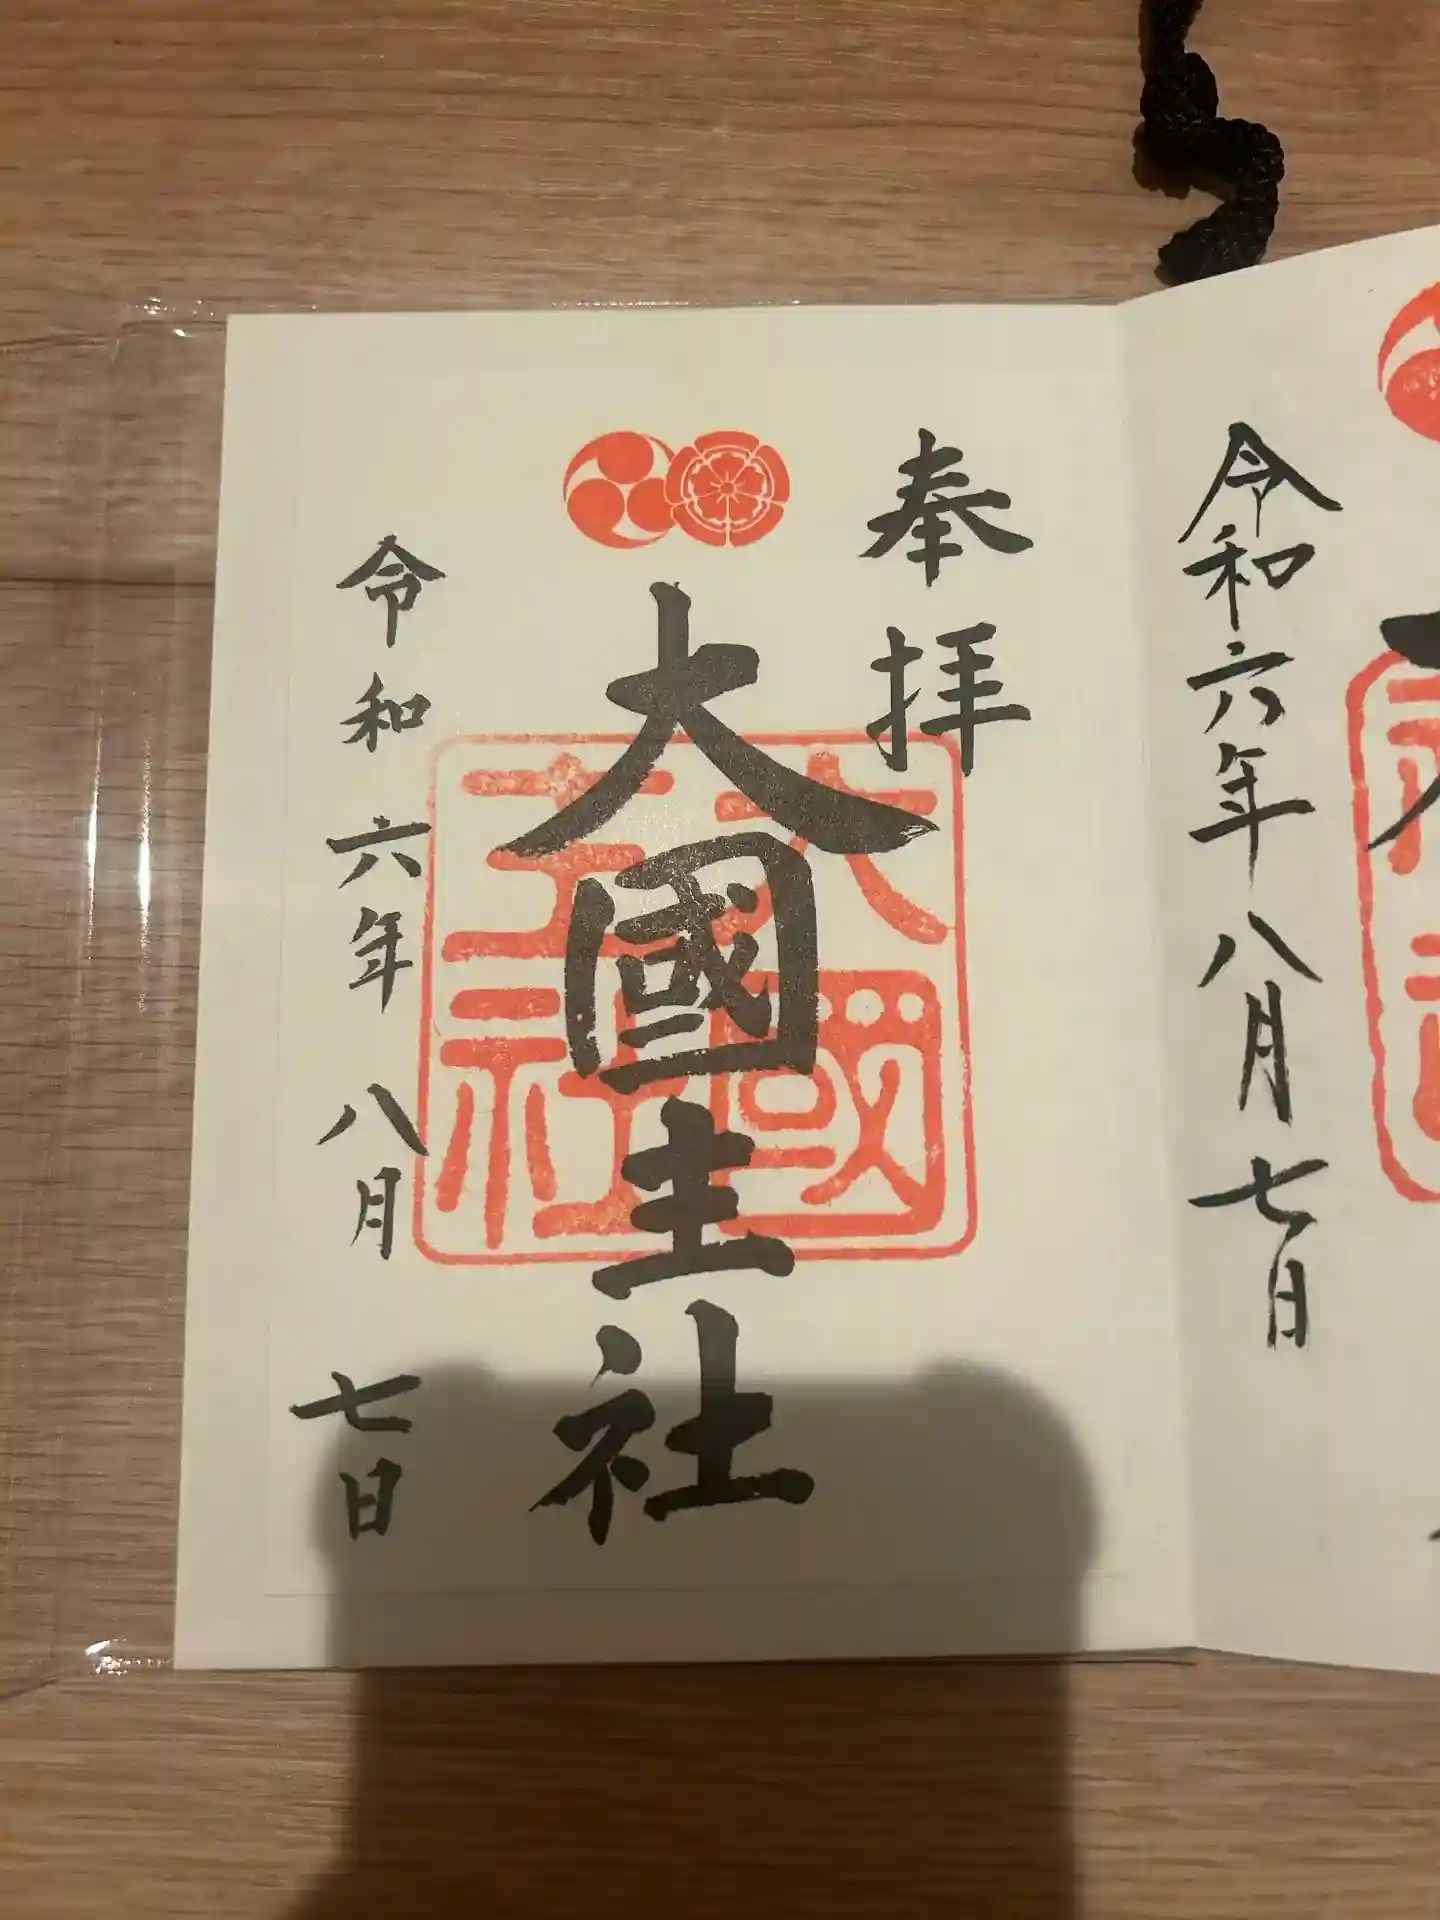 令和六年八月七日
奉拝
大國主社
大國主社
令和六年八月七日